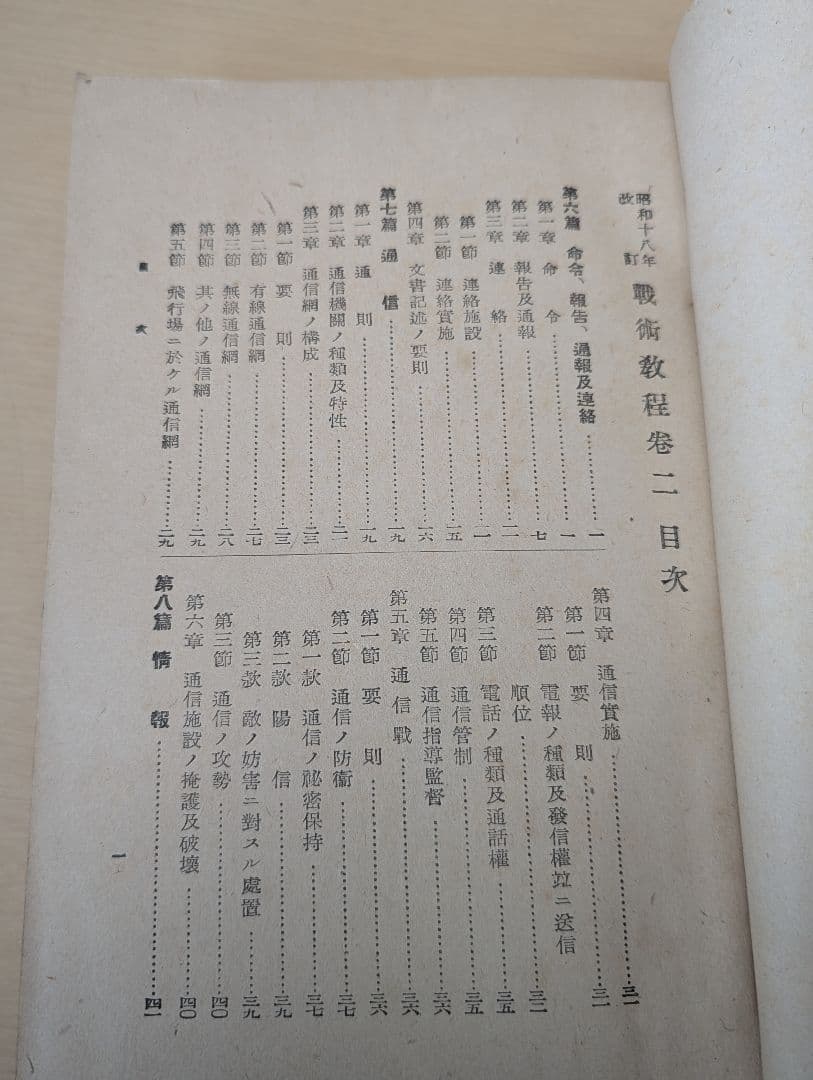 昭和十八年改訂 戰術教程卷二 目次
第六篇 命令、報告、通報及連絡……一
第一章 命令……一
第二章 報告及通報……七
第三章 連絡……一一
第一節 連絡施設……一一
第二節 連絡實施……一五
第四章 文書記述ノ要則……一六
第七篇 通信……一九
第一章 通則……一九
第二章 通信機關ノ種類及特性……二一
第三章 通信網ノ構成……二三
第一節 要則……二三
第二節 有線通信網……二七
第三節 無線通信網……二八
第四節 其ノ他ノ通信網……二九
第五節 飛行場ニ於ケル通信網……二九
第四章 通信實施……三一
第一節 要則……三一
第二節 電報ノ種類及發信權竝ニ送信
順位……三二
第三節 電話ノ種類及通話權……三五
第四節 通信管制……三五
第五節 通信指導監督……三六
第五章 通信戰……三六
第一節 要則……三六
第二節 通信ノ防衞……三七
第一款 通信ノ祕密保持……三七
第二款 陽信……三九
第三款 敵ノ妨害ニ對スル處置……三九
第三節 通信ノ攻勢……四〇
第六章 通信施設ノ掩護及破壞……四〇
第八篇 情報……四一
目次
一